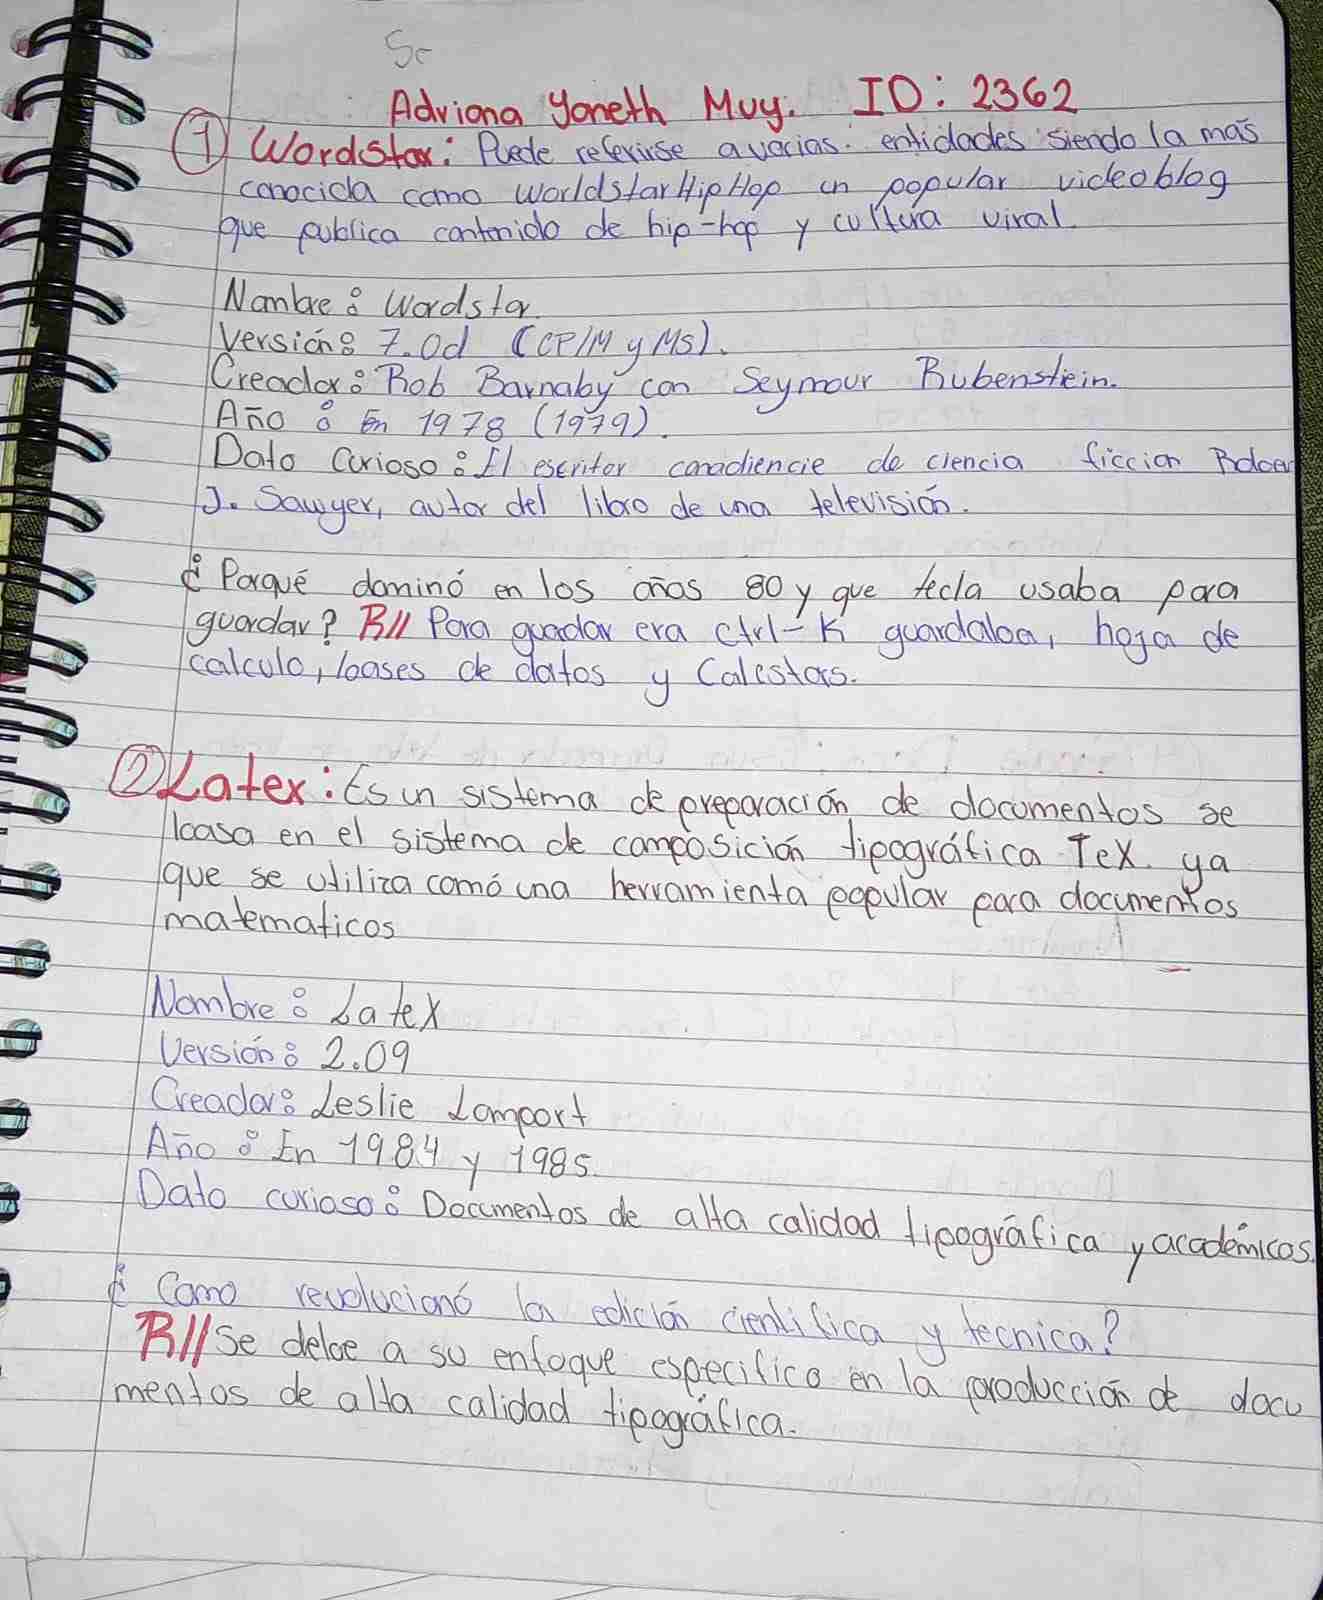 Sc
Adriana Yaneth Muy. ID: 2362
① Wordstar: Puede referirse a varias entidades siendo la más
conocida como WorldstarHipHop un popular videoblog
que publica contenido de hip-hop y cultura viral.
Nombre: Wordstar.
Versión: 7.0d (CP/M y Ms).
Creador: Rob Barnaby con Seymour Rubenstein.
Año: En 1978 (1979).
Dato Curioso: El escritor canadiencie de ciencia ficcion
J. Sawyer, autor del libro de una televisión.
¿Porqué dominó en los años 80 y que tecla usaba para
guardar? R// Para guadar era Ctrl-K guardaba, hoja de
calculo, bases de datos y Calcstars.
② Latex: Es un sistema de preparación de documentos se
basa en el sistema de composición tipográfica TeX ya
que se utiliza comó una herramienta popular para documentos
matematicos
Nombre: LateX
Versión: 2.09
Creador: Leslie Lamport
Año: En 1984 y 1985.
Dato curioso: Documentos de alta calidad tipográfica y académicos.
¿Como revolucionó la edición cientifica y tecnica?
R// Se debe a su enfoque especifico en la producción de docu
mentos de alta calidad tipográfica.